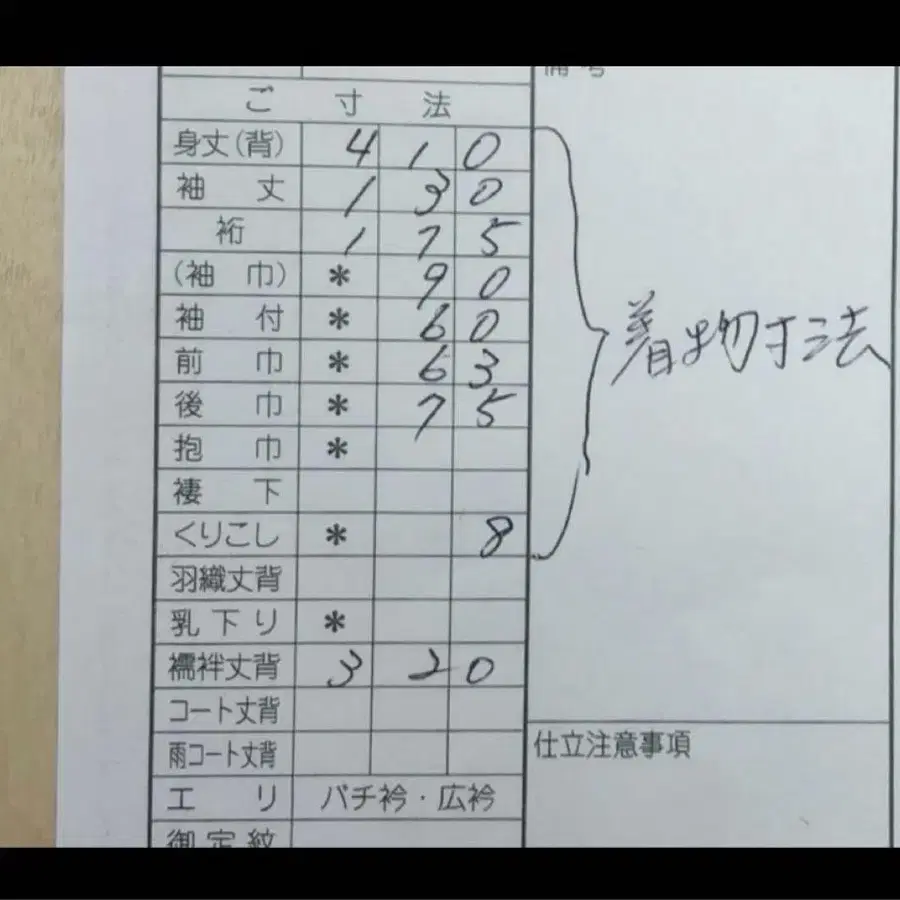 備考
ご寸法
身丈(背) 4 1 0
袖丈 1 3 0
裄 1 7 5
(袖巾) * 9 0
袖付 * 6 0
前巾 * 6 3
後巾 * 7 5
抱巾 *
褄下
くりこし * 8
羽織丈背
乳下り *
襦袢丈背 3 2 0
コート丈背
雨コート丈背
エリ バチ衿・広衿
御定紋
着物寸法
仕立注意事項